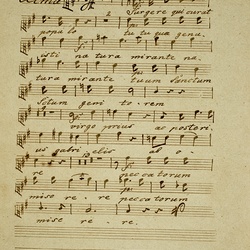 Surgere qui curat
popu lo tu tu qua gena,
isti na tura mirante na,
tura mirante tuum sanctum
Sctum geni to rem
virgo prius ac posteri,
us gabri elis ab o
re peccatorum
mise re re peccatorum
mise re re.